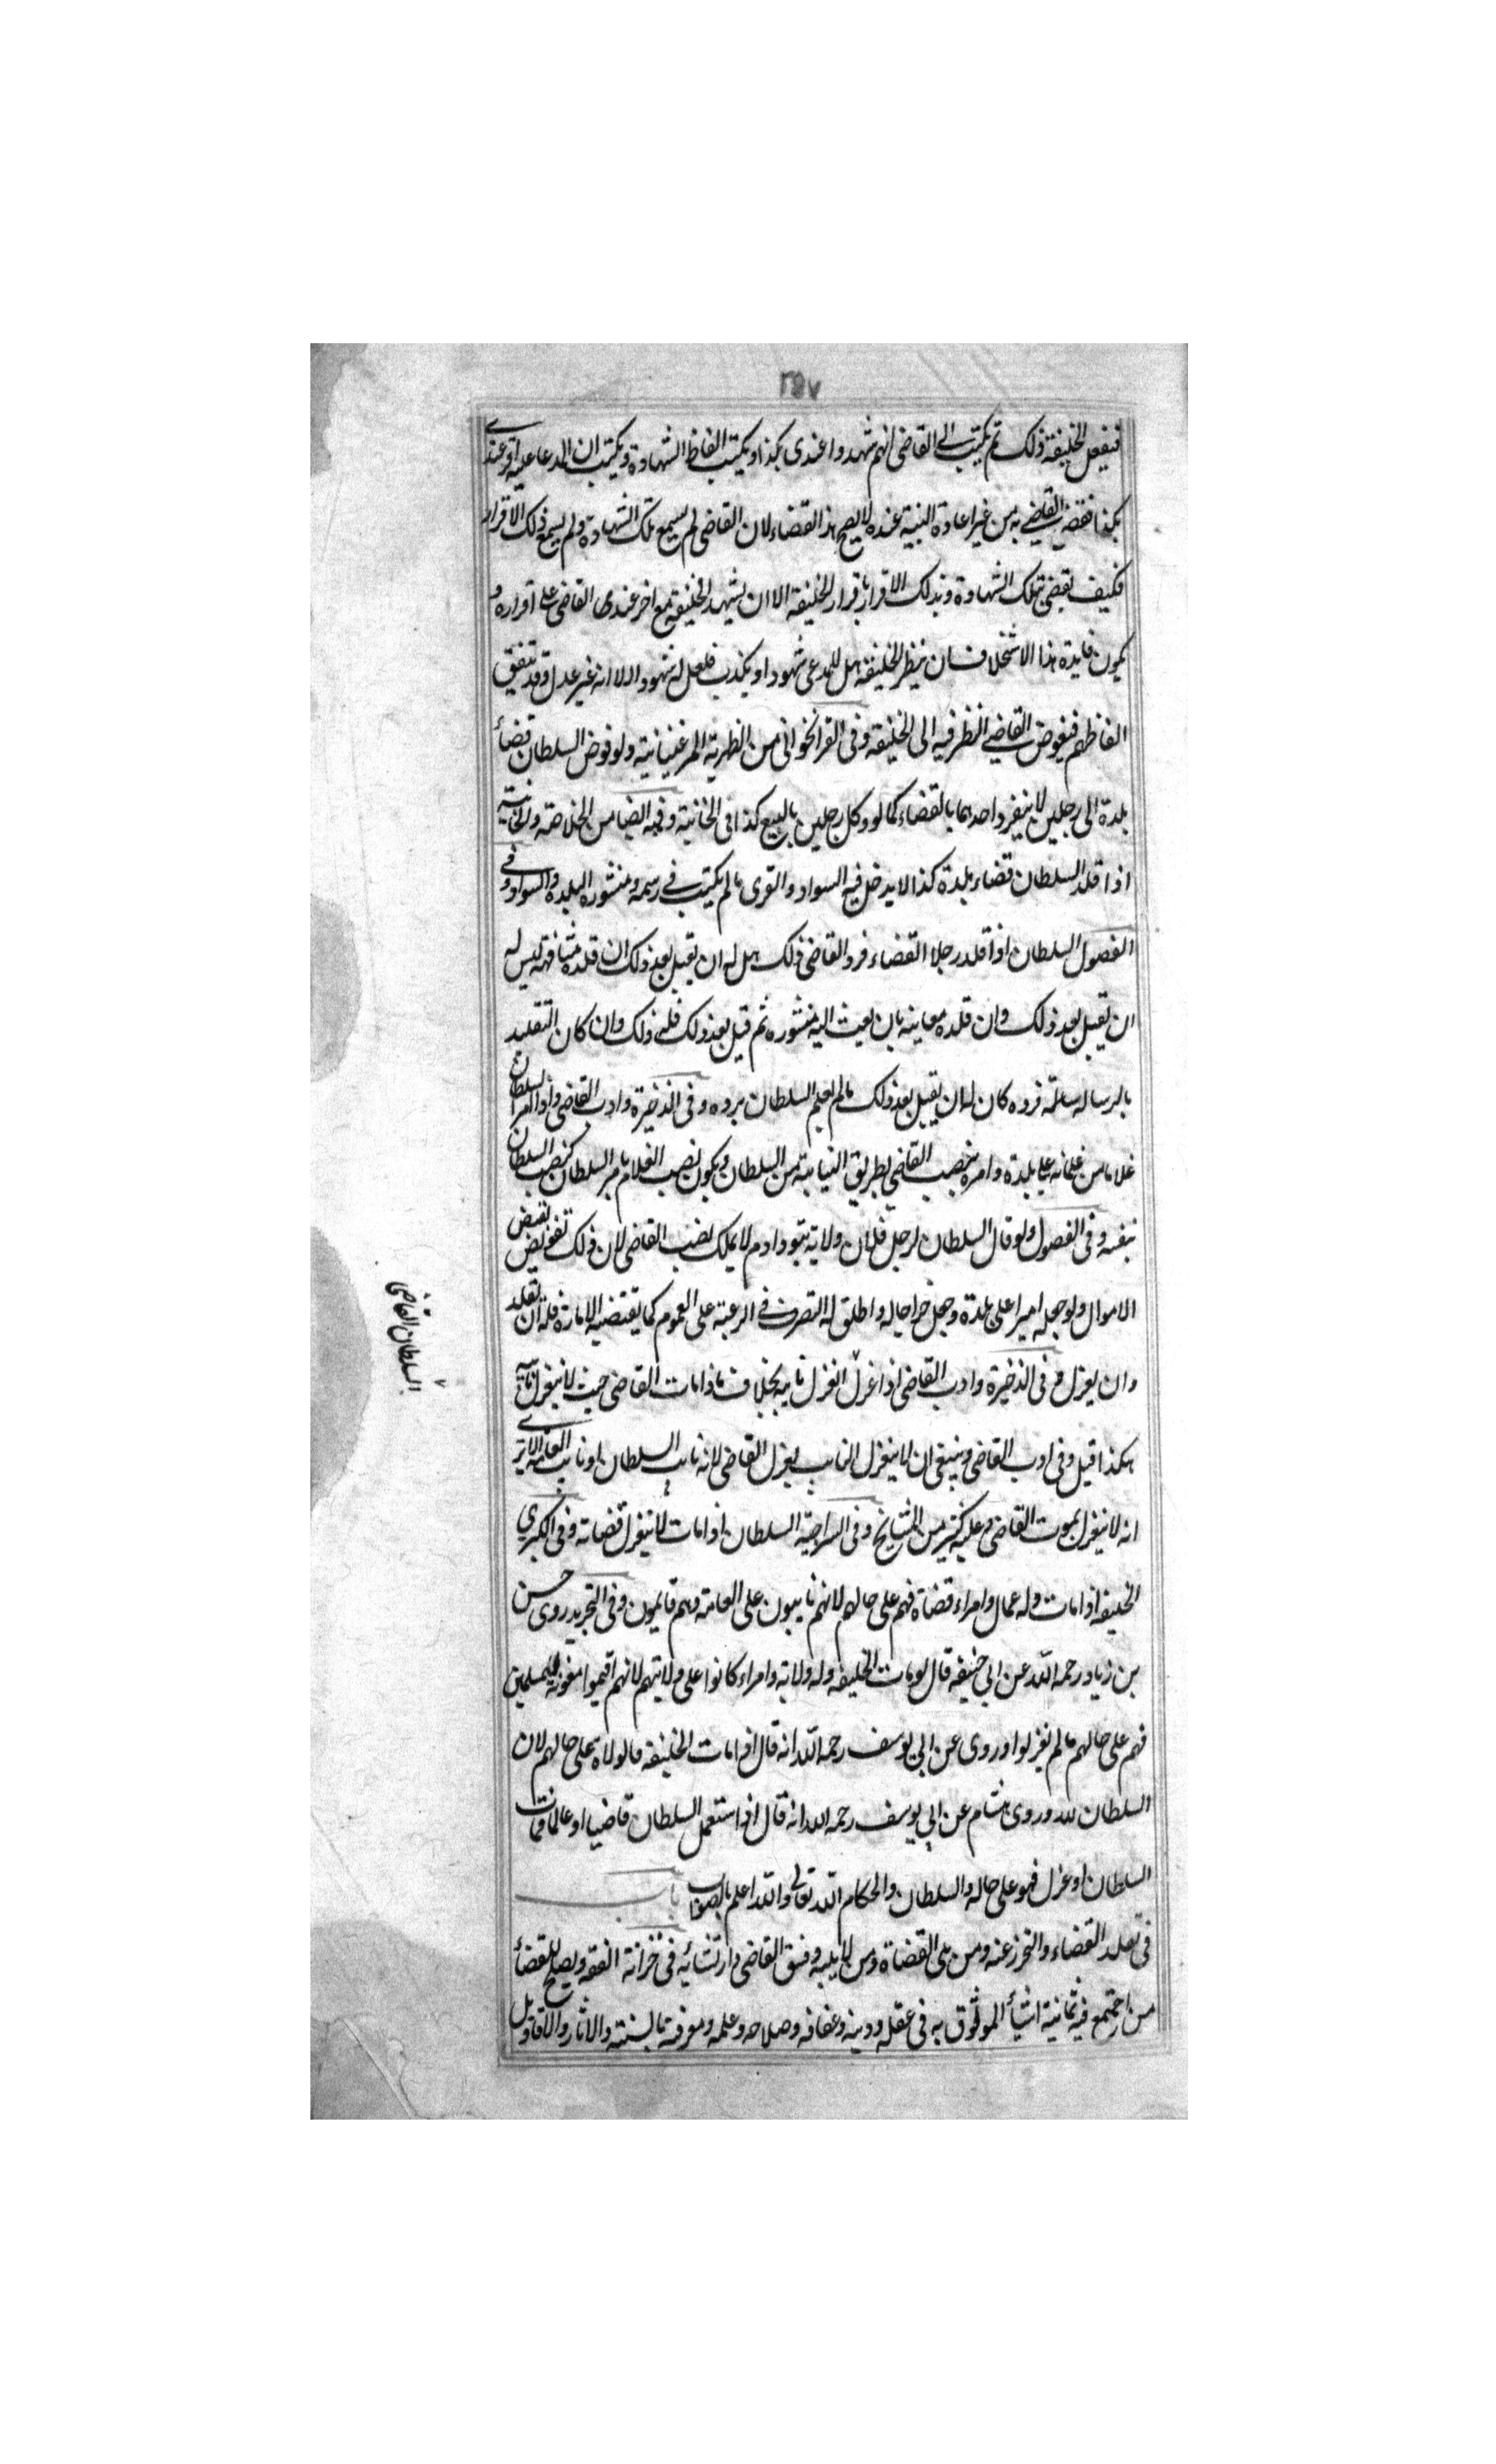 ٢٥٧
فيفعل الخليفة ذلك ثم يكتب الى القاضي انهم شهدوا عندى بكذا ويكتب الفاظ الشهادة ويكتب ان المدعا عليه اقر عندى
بكذا فقضى القاضي به من غير اعادة البينة عنده لا يصح هذا القضاء لان القاضى لم يسمع تلك الشهادة ولم يسمع ذلك الاقرار
فكيف يقضى بتلك الشهادة وبذلك الاقرار باقرار الخليفة الا ان يشهد الخليفة مع اخر عندى القاضى على اقراره و
يكون فايدة هذا الاستخلاف ان ينظر الخليفة هل للمدعى شهود او يكذب فلعل له شهودا الا انه غير عدل وقد تتفق
الفاظهم فيفوض القاضي النظر فيه الى الخليفة وفى القراخوانى من الظهرية المرغينانية ولو فوض السلطان قضاء
بلدة الى رجلين لا ينفرد احدهما بالقضاء كما لو وكل رجلين بالبيع كذا فى الخانية وفيه ايضا من الخلاصة والخانية
اذا قلد السلطان قضاء بلدة كذا لا يدخل فيه السواد والقرى ما لم يكتب فى رسمه ومنشوره البلدة والسواد وفى
الفصول السلطان اذا قلد رجلا القضاء فرد القاضى ذلك هل له ان يقبل بعد ذلك ان قلده مشافهة ليس له
ان يقبل بعد ذلك وان قلده معاينه بان بعث اليه منشوره ثم قبل بعد ذلك فله ذلك وان كان التقليد
بالرسالة فرده كان له ان يقبل بعد ذلك ما لم يعلم السلطان برده وفى الذخيرة وادب القاضى واذا امر السلطان
غلاما من غلمانه على بلدة وامره بنصب القاضي بطريق النيابة من السلطان ويكون نصب الغلام بامر السلطان كنصب السلطان
بنفسه وفى الفصول ولو قال السلطان لرجل فلان ولايه بتو دادم لا يملك نصب القاضى لان ذلك تفويض بقبض
الاموال ولو جعله اميرا على بلدة وجعل خراجها له واطلق له التصرف فى الرعية على العموم كما يقتضيه الامارة فله ان يقلد
وان يعزل وفى الذخيرة وادب القاضى اذا عزل انعزل نايبه بخلاف ما اذا مات القاضى حيث لا ينعزل نايبه
هكذا قيل وفى ادب القاضى وينبغى ان لا ينعزل النايب بعزل القاضى لانه نايب السلطان او نايب العامة الا يرى
انه لا ينعزل بموت القاضى وعليه كثير من المشايخ وفى السراجية السلطان اذا مات لا ينعزل قضاته وفى الكبرى
الخليفة اذا مات وله عمال وامراء قضاة فهم على حالهم لانهم نايبون على العامة وهم قايمون وفى التجريد روى حسن
بن زياد رحمه الله عن ابى حنيفه قال لو مات الخليفة وله ولاية وامراء كانوا على ولايتهم لانهم اقيموا للمسلمين
فهم على حالهم ما لم يعزلوا وروى عن ابى يوسف رحمه الله انه قال اذا مات الخليفة فالولاة على حالهم لان
السلطان لله وروى هشام عن ابى يوسف رحمه الله انه قال اذا استعمل السلطان قاضيا او عاملا فمات
السلطان او عزل فهو على حاله والسلطان والحكام الله تعالى والله اعلم بالصواب باب
فى تقلد القضاء والتحرز عنه ومن يلى القضاة ومن لا يليه وفسق القاضى وارتشائه فى خزانة الفقه ويصلح للقضاء
من اجتمع فيه ثمانية اشياء الموثوق به فى عقله ودينه وعفافه وصلاحه وعلمه ومعرفته بالسنة والاثار والاقاويل
السلطان القاضى